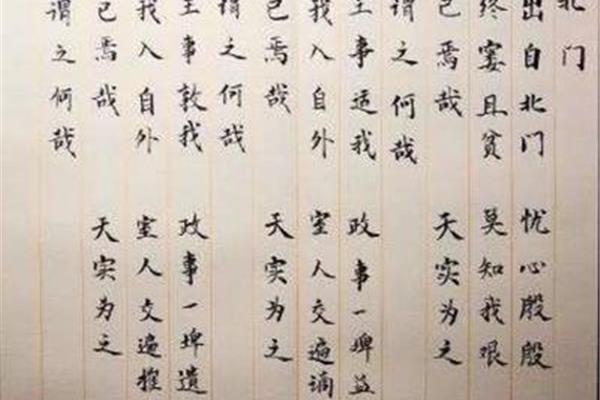 北门
出自北门 忧心殷殷
终窭且贫 莫知我艰
已焉哉 天实为之
谓之何哉
王事适我 政事一埤益
我入自外 室人交遍谪
已焉哉 天实为之
谓之何哉
王事敦我 政事一埤遗
我入自外 室人交遍摧
已焉哉 天实为之
谓之何哉